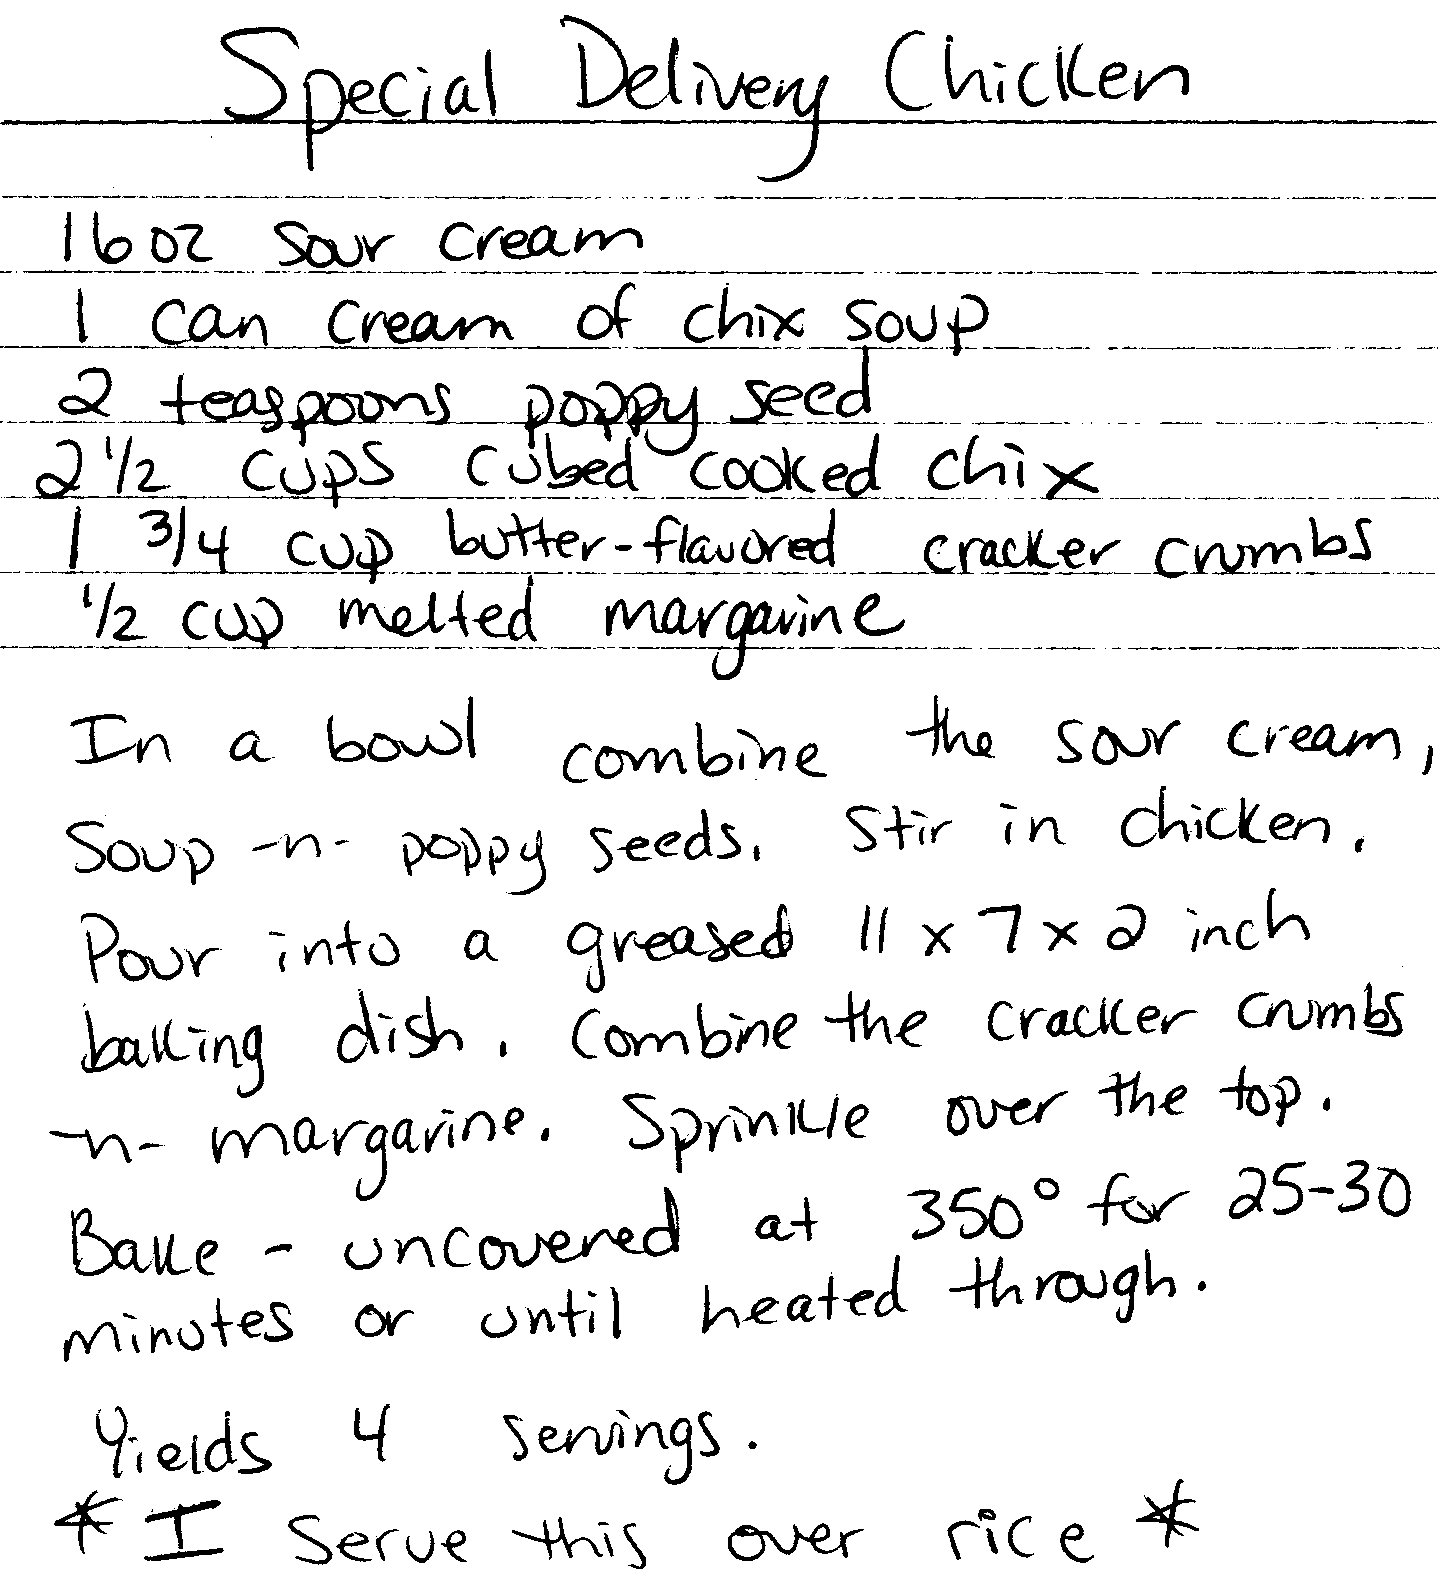 Special Delivery Chicken
16 oz sour cream
1 can cream of chix soup
2 teaspoons poppy seed
2 1/2 cups cubed cooked chix
1 3/4 cup butter-flavored cracker crumbs
1/2 cup melted margarine
In a bowl combine the sour cream,
Soup -n- poppy seeds. Stir in chicken.
Pour into a greased 11 x 7 x 2 inch
baking dish. Combine the cracker crumbs
-n- margarine. Sprinkle over the top.
Bake - uncovered at 350° for 25-30
minutes or until heated through.
Yields 4 servings.
* I serve this over rice *